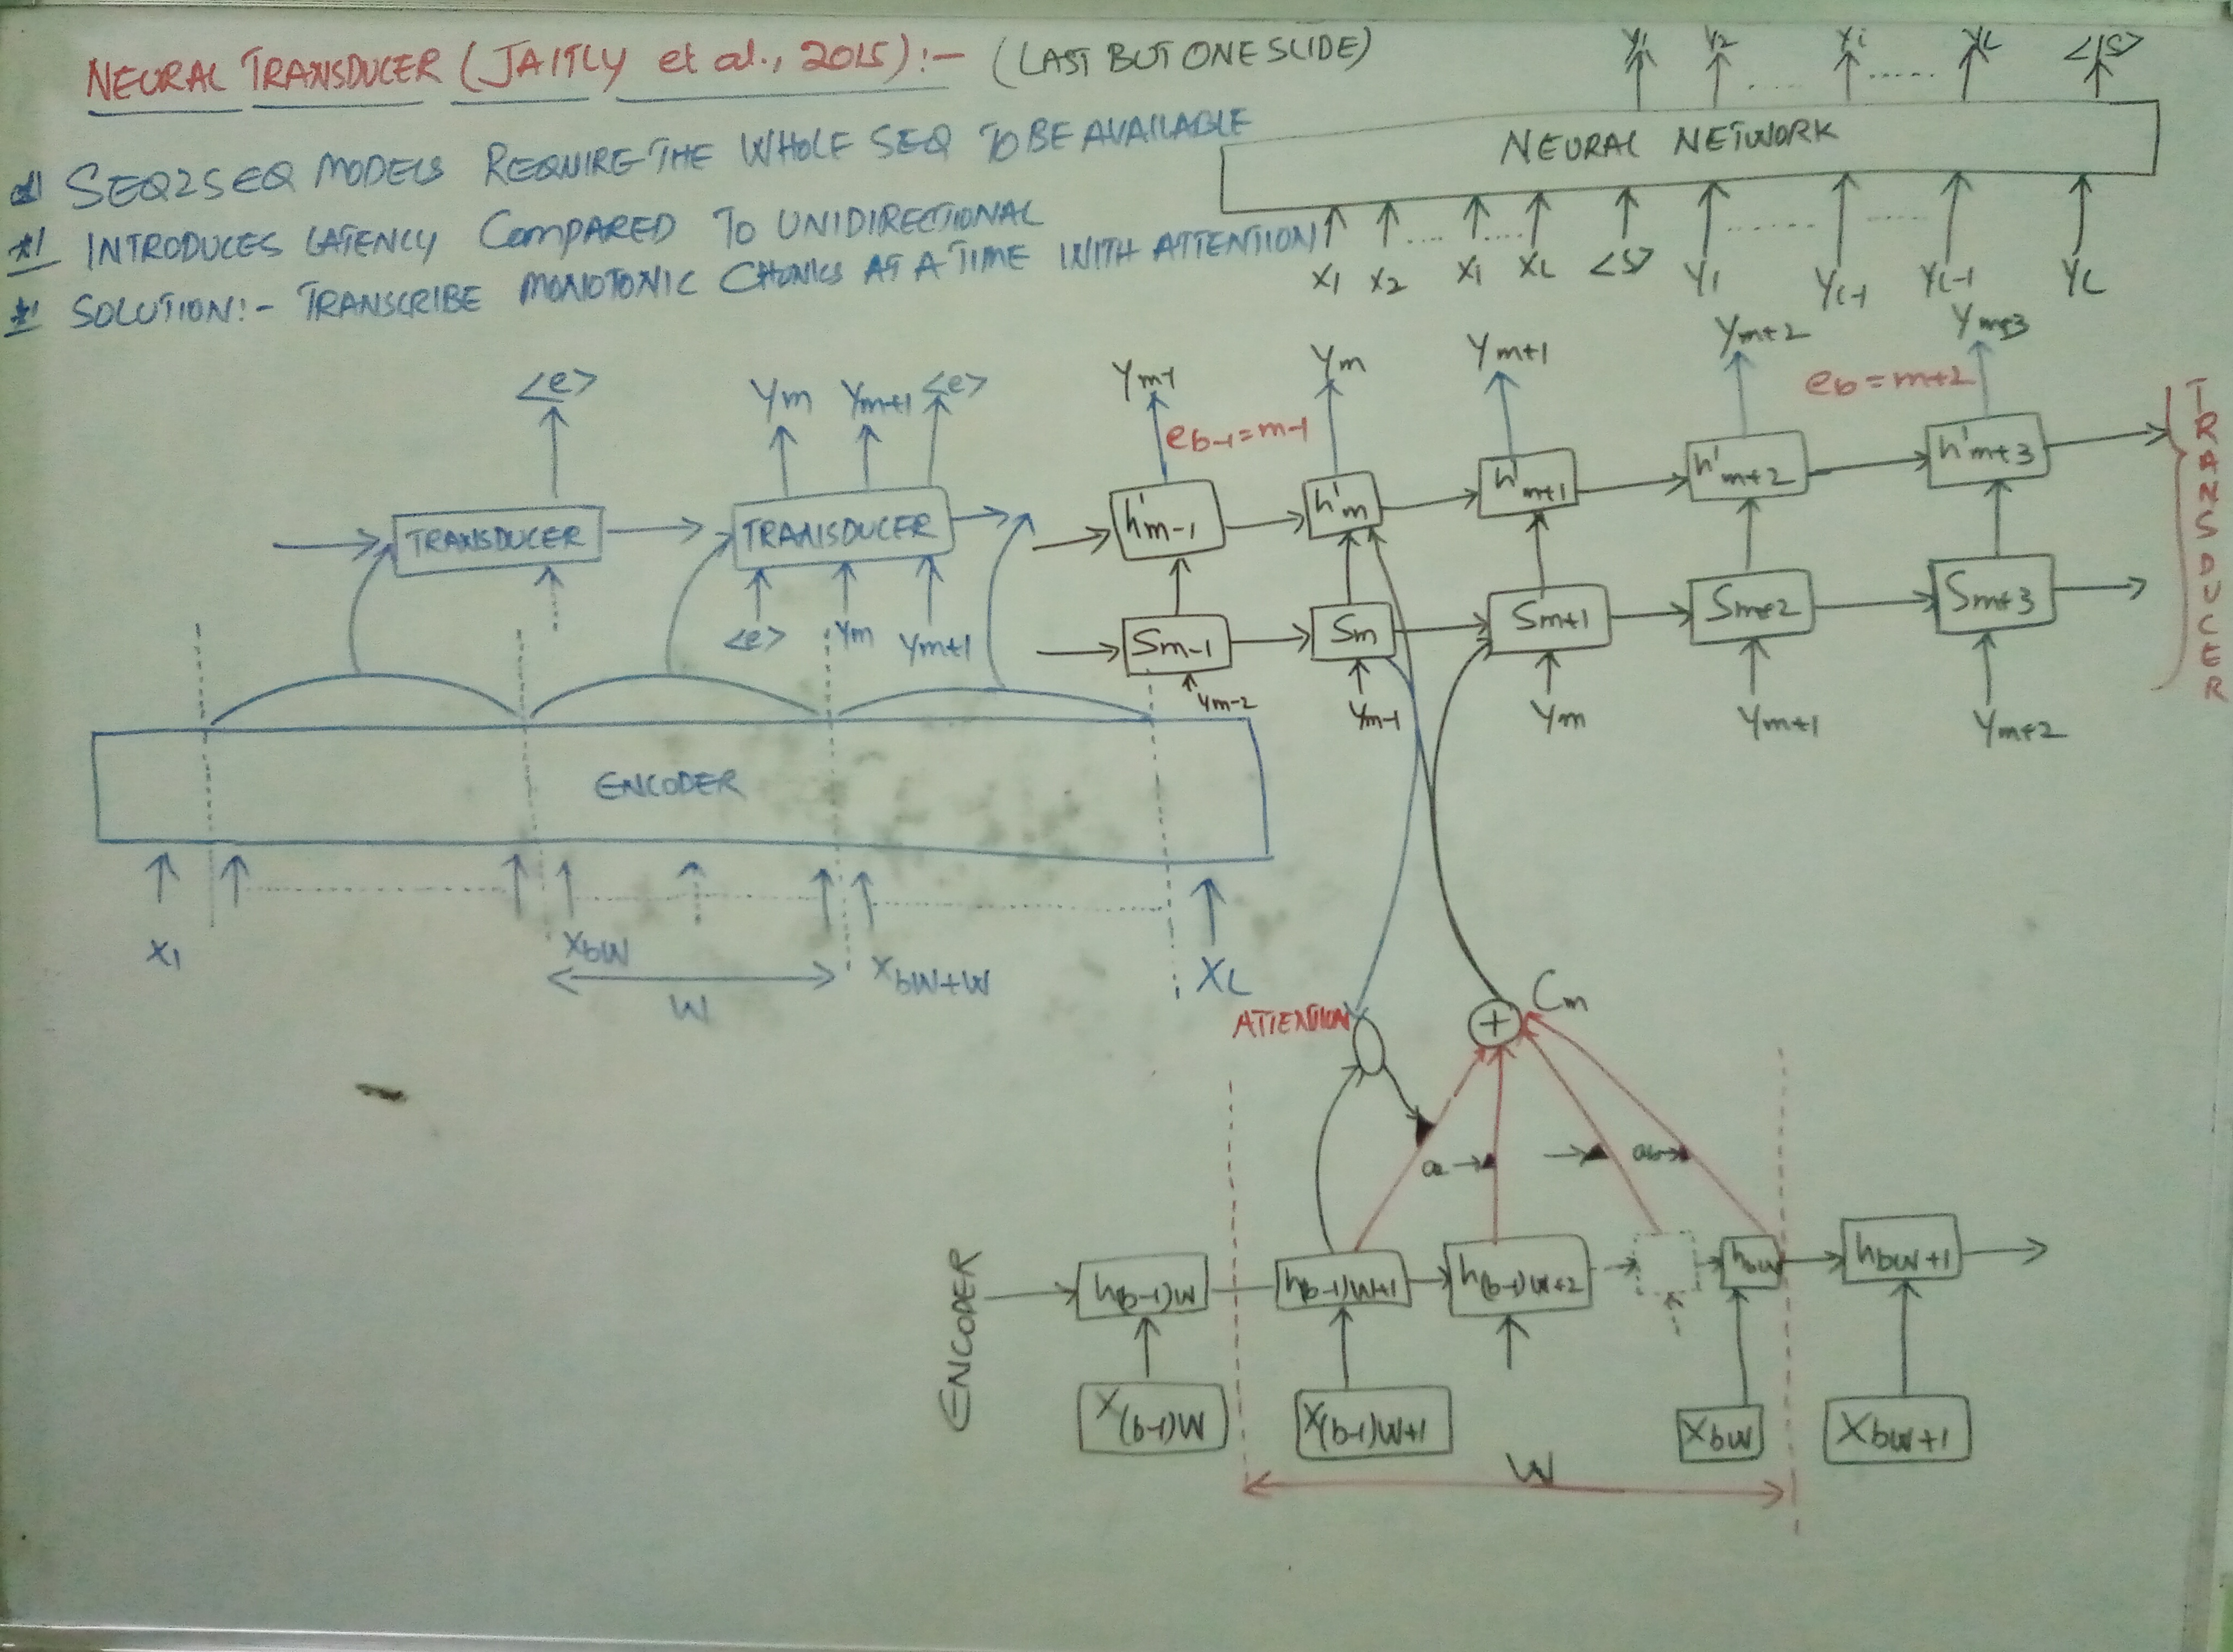 NEURAL TRANSDUCER (JAITLY et al., 2015):- (LAST BUT ONE SLIDE)
*| SEQ2SEQ MODELS REQUIRE THE WHOLE SEQ TO BE AVAILABLE
*| INTRODUCES LATENCY COMPARED TO UNIDIRECTIONAL
*| SOLUTION:- TRANSCRIBE MONOTONIC CHUNKS AT A TIME WITH ATTENTION
y1 y2 ..... yi ..... yL </S>
NEURAL NETWORK
x1 x2 .... xi .... xL <S> y1 ...... yi-1 ..... yL-1 yL
<e> ym ym+1 <e>
TRANSDUCER TRANSDUCER
<e> ym ym+1
ENCODER
x1 xbW xbW+W xL
W
ym-1 ym ym+1 ym+2 ym+3
eb-1=m-1 eb=m+2
h'm-1 h'm h'm+1 h'm+2 h'm+3
Sm-1 Sm Sm+1 Sm+2 Sm+3
ym-2 ym-1 ym ym+1 ym+2
TRANSDUCER
ATTENTION + Cm
ENCODER
h(b-1)W h(b-1)W+1 h(b-1)W+2 hbW hbW+1
x(b-1)W x(b-1)W+1 xbW xbW+1
W